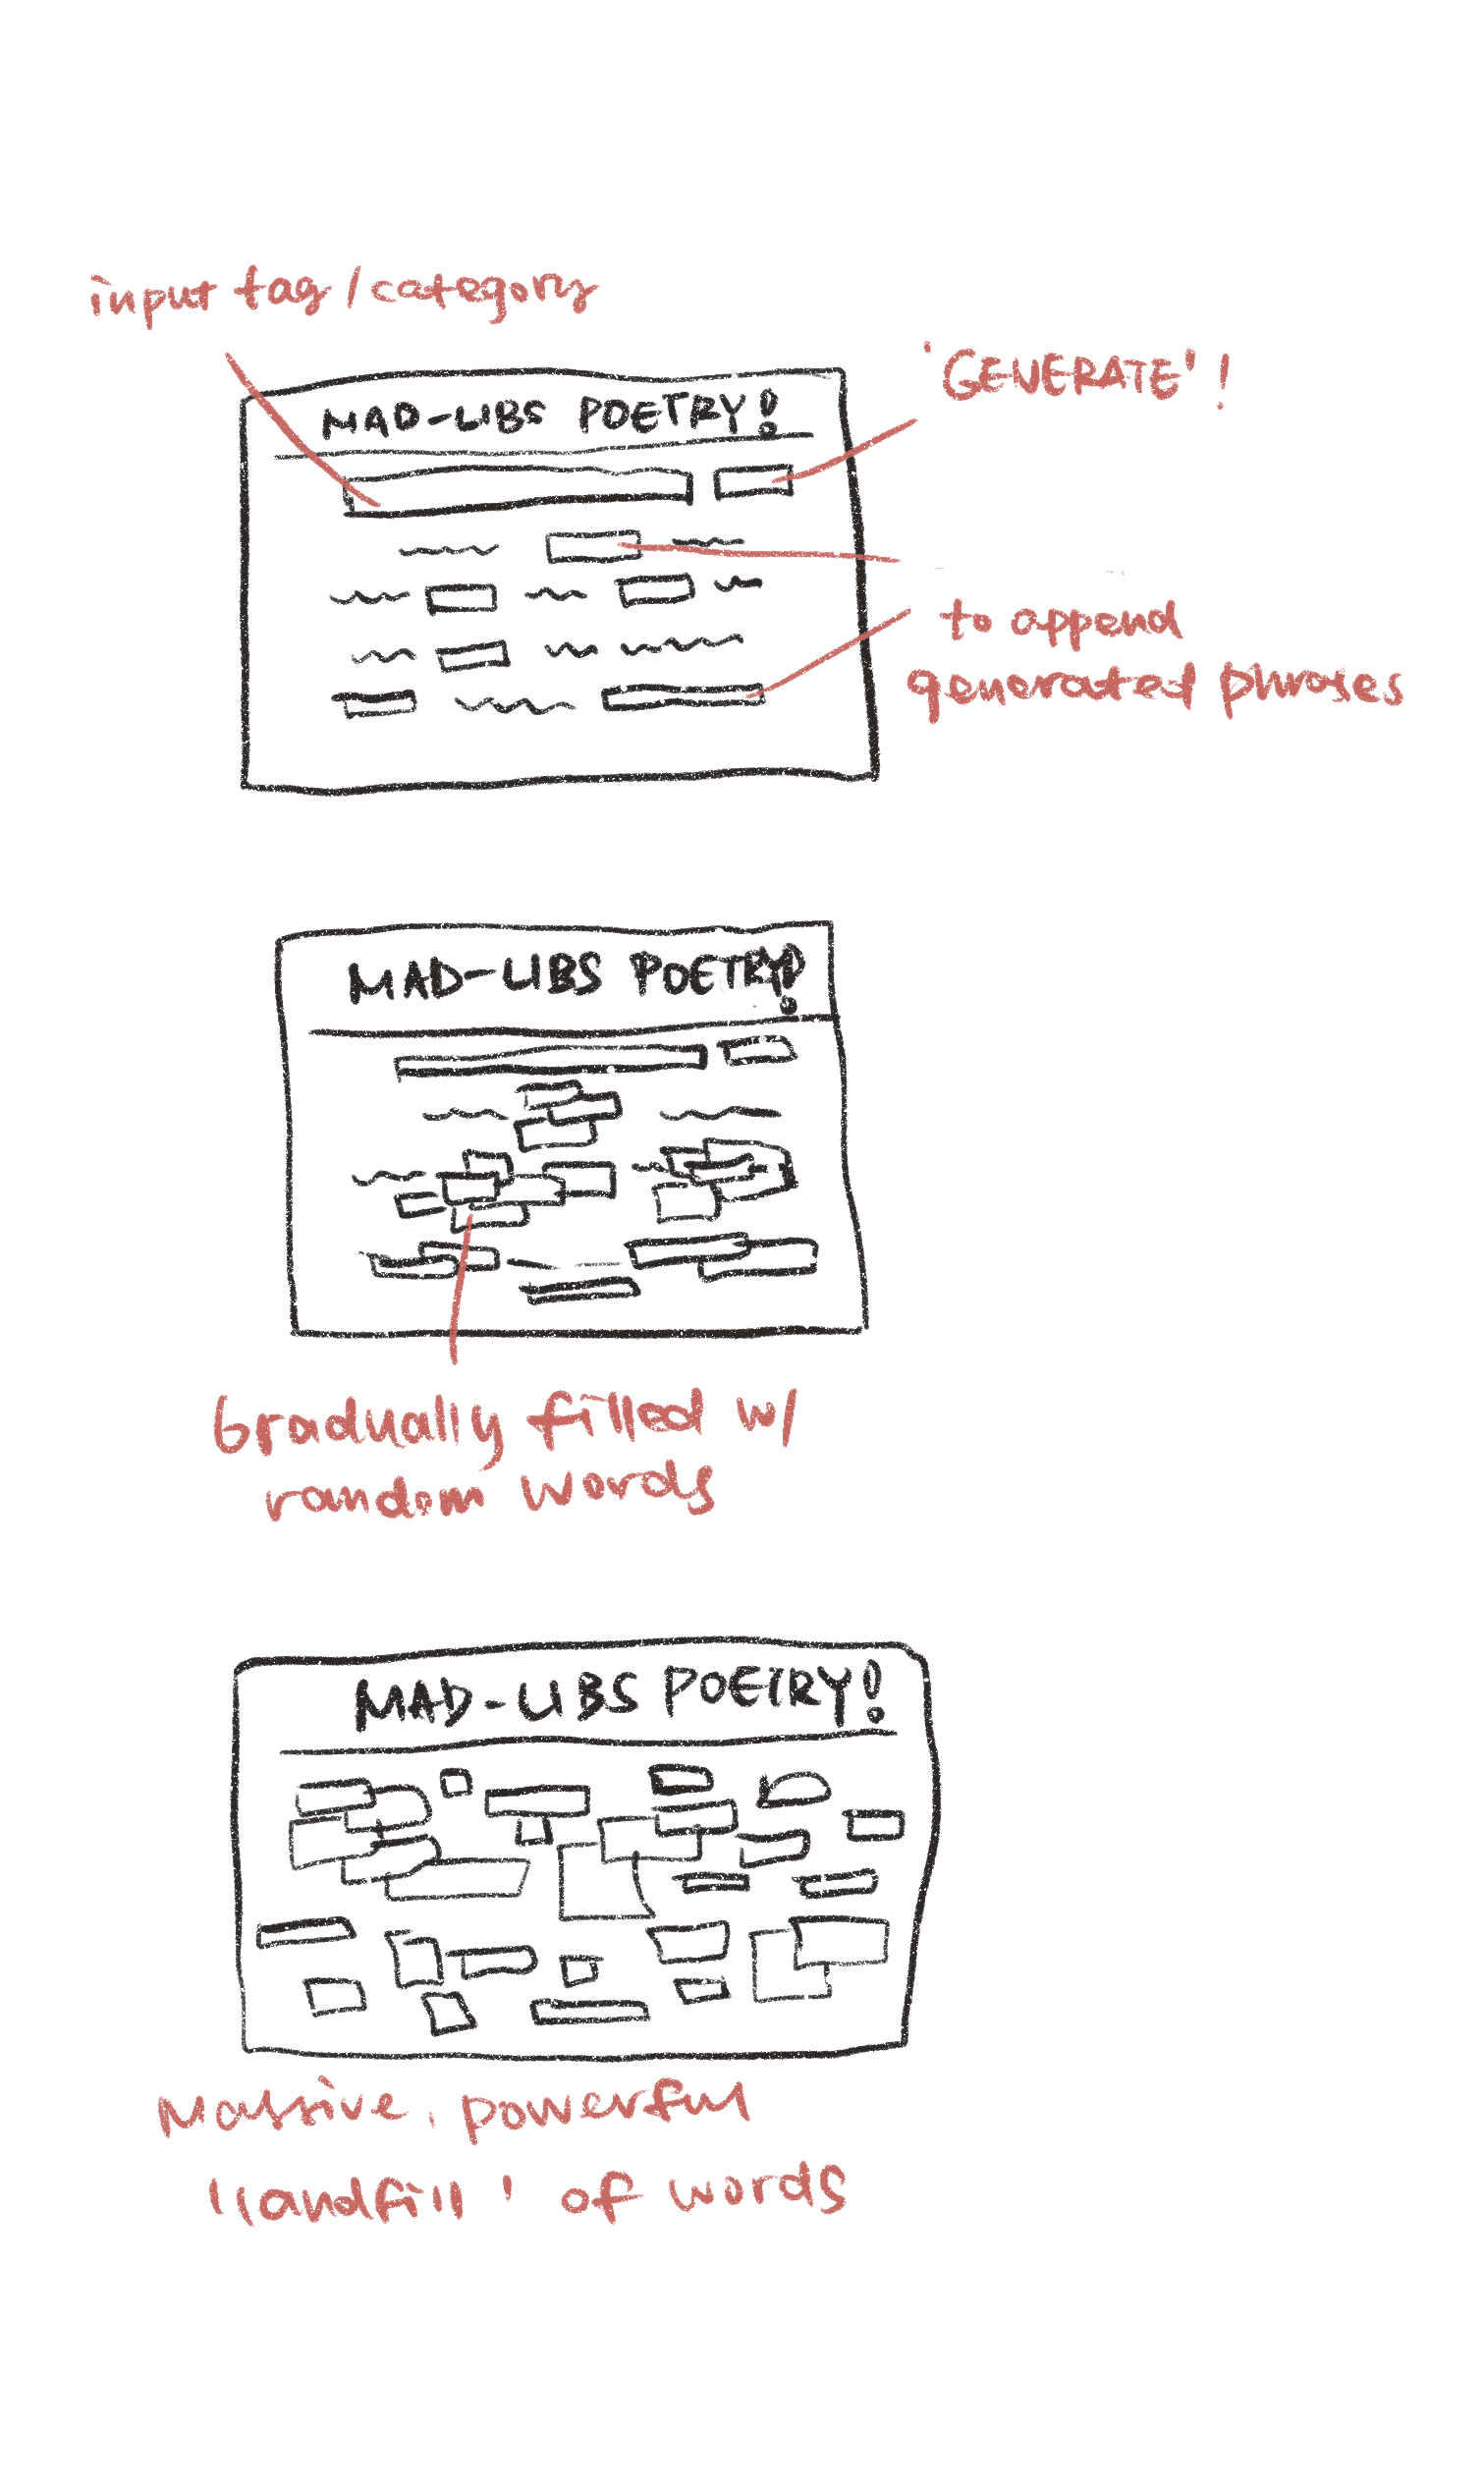 input tag / category
'GENERATE' !
MAD-LIBS POETRY!
to append
generated phrases
MAD-LIBS POETRY!
Gradually filled w/
random words
MAD-LIBS POETRY!
Massive, powerful
'landfill' of words